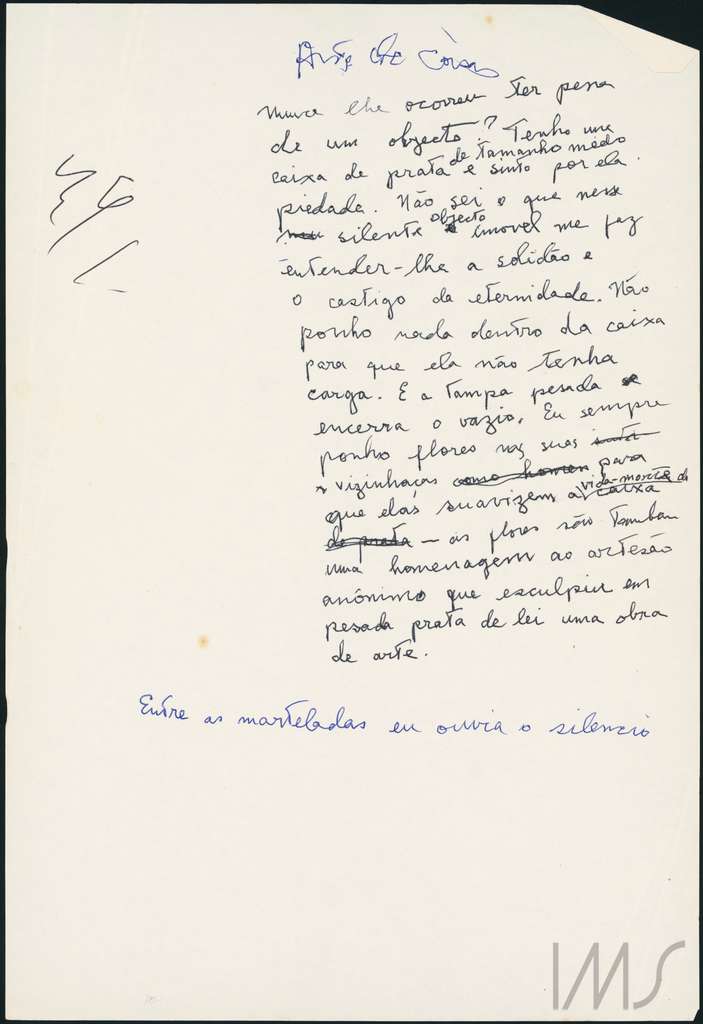 Nunca lhe ocorreu ter pena
de um objecto? Tenho uma
caixa de prata de tamanho medio e sinto por ela
piedade. Não sei o que nesse
silente objecto imovel me faz
entender-lhe a solidão e
o castigo da eternidade. Não
ponho nada dentro da caixa
para que ela não tenha
carga. E a tampa pesada
encerra o vazio. Eu sempre
ponho flores nas suas
vizinhaças como homen para
que elas suavizem a vida-morte da caixa
de prata — as flores são tambem
uma homenagem ao artesão
anônimo que esculpiu em
pesada prata de lei uma obra
de arte.
Entre as marteladas eu ouvia o silencio
IMS